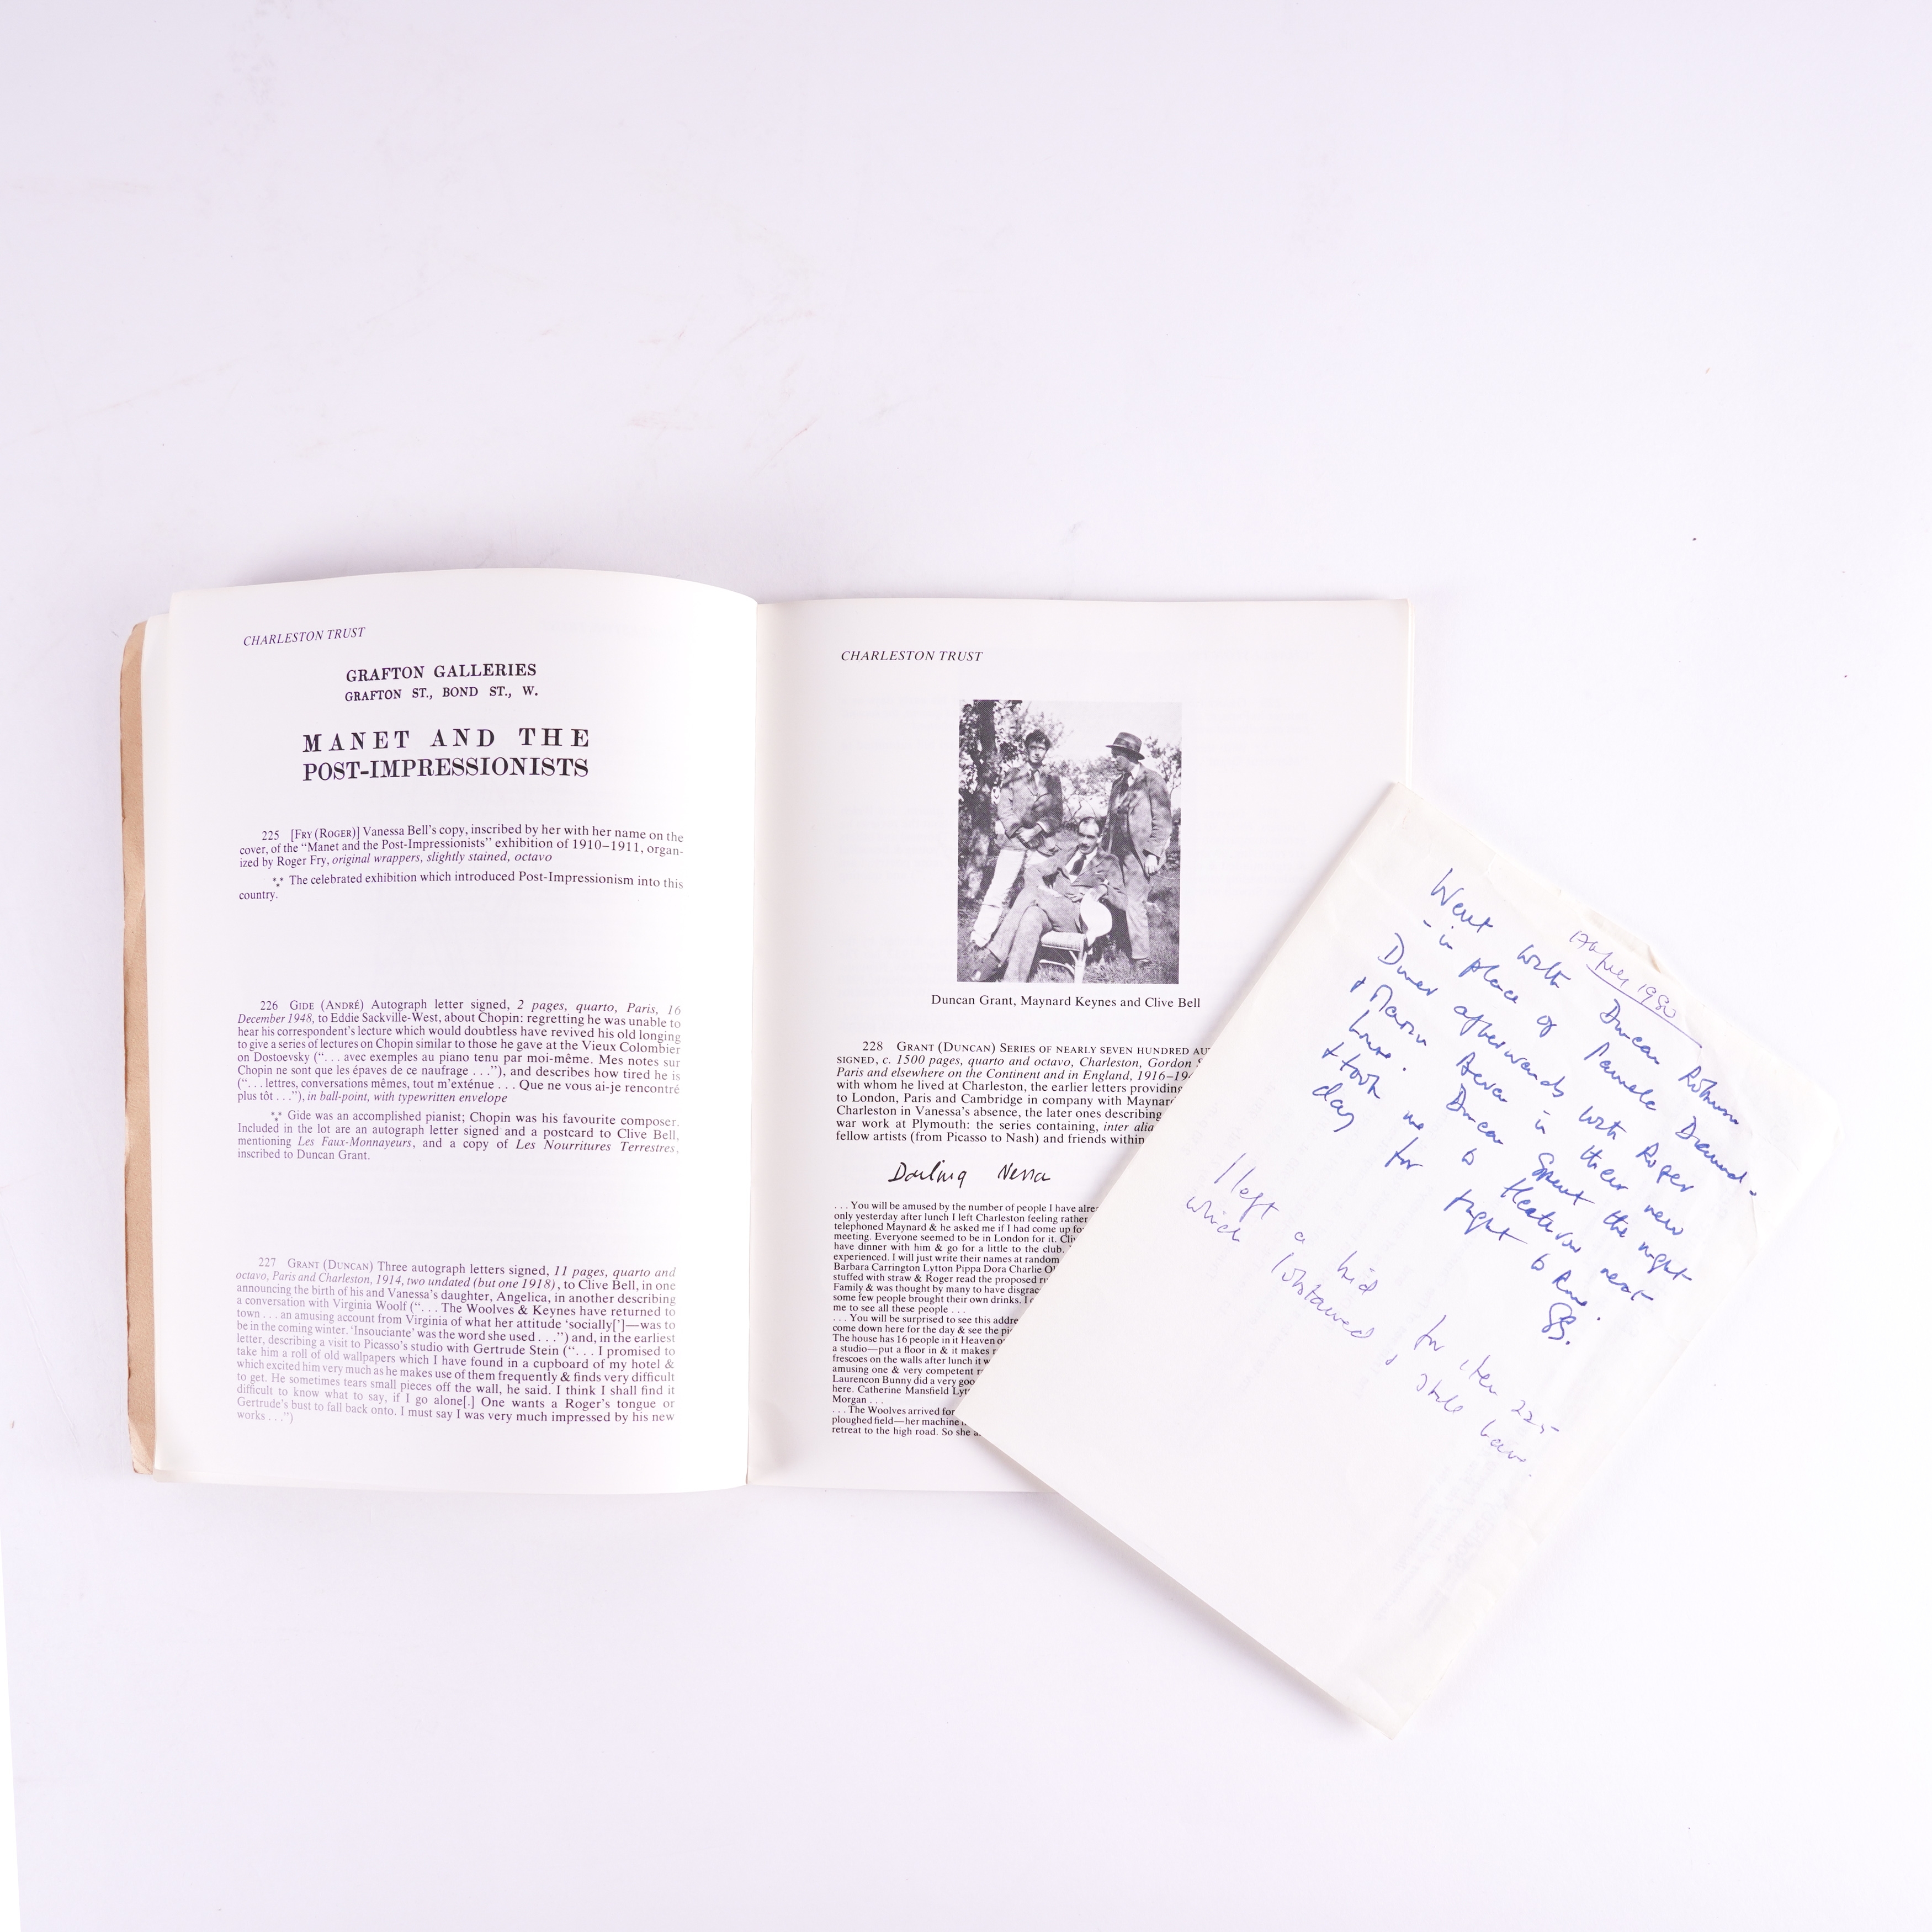 CHARLESTON TRUST
GRAFTON GALLERIES
GRAFTON ST., BOND ST., W.
MANET AND THE
POST-IMPRESSIONISTS
225 [FRY (ROGER)] Vanessa Bell's copy, inscribed by her with her name on the
cover, of the “Manet and the Post-Impressionists” exhibition of 1910–1911, organ-
ized by Roger Fry, original wrappers, slightly stained, octavo
⁂ The celebrated exhibition which introduced Post-Impressionism into this
country.
226 GIDE (ANDRÉ) Autograph letter signed, 2 pages, quarto, Paris, 16
December 1948, to Eddie Sackville-West, about Chopin: regretting he was unable to
hear his correspondent's lecture which would doubtless have revived his old longing
to give a series of lectures on Chopin similar to those he gave at the Vieux Colombier
on Dostoevsky (“. . . avec exemples au piano tenu par moi-même. Mes notes sur
Chopin ne sont que les épaves de ce naufrage . . .”), and describes how tired he is
(“. . . lettres, conversations mêmes, tout m'exténue . . . Que ne vous ai-je rencontré
plus tôt . . .”), in ball-point, with typewritten envelope
⁂ Gide was an accomplished pianist; Chopin was his favourite composer.
Included in the lot are an autograph letter signed and a postcard to Clive Bell,
mentioning Les Faux-Monnayeurs, and a copy of Les Nourritures Terrestres,
inscribed to Duncan Grant.
227 GRANT (DUNCAN) Three autograph letters signed, 11 pages, quarto and
octavo, Paris and Charleston, 1914, two undated (but one 1918), to Clive Bell, in one
announcing the birth of his and Vanessa's daughter, Angelica, in another describing
a conversation with Virginia Woolf (“. . . The Woolves & Keynes have returned to
town . . . an amusing account from Virginia of what her attitude ‘socially[’]—was to
be in the coming winter. ‘Insouciante’ was the word she used . . .”) and, in the earliest
letter, describing a visit to Picasso's studio with Gertrude Stein (“. . . I promised to
take him a roll of old wallpapers which I have found in a cupboard of my hotel &
which excited him very much as he makes use of them frequently & finds very difficult
to get. He sometimes tears small pieces off the wall, he said. I think I shall find it
difficult to know what to say, if I go alone[.] One wants a Roger's tongue or
Gertrude's bust to fall back onto. I must say I was very much impressed by his new
works . . .”)
CHARLESTON TRUST
Duncan Grant, Maynard Keynes and Clive Bell
228 GRANT (DUNCAN) SERIES OF NEARLY SEVEN HUNDRED AU
SIGNED, c. 1500 pages, quarto and octavo, Charleston, Gordon S
Paris and elsewhere on the Continent and in England, 1916–19
with whom he lived at Charleston, the earlier letters providing
to London, Paris and Cambridge in company with Maynard
Charleston in Vanessa's absence, the later ones describing
war work at Plymouth: the series containing, inter alia
fellow artists (from Picasso to Nash) and friends within
Darling Nessa
. . . You will be amused by the number of people I have alre
only yesterday after lunch I left Charleston feeling rather
telephoned Maynard & he asked me if I had come up fo
meeting. Everyone seemed to be in London for it. Cli
have dinner with him & go for a little to the club.
experienced. I will just write their names at random
Barbara Carrington Lytton Pippa Dora Charlie O
stuffed with straw & Roger read the proposed ru
Family & was thought by many to have disgrac
some few people brought their own drinks. I
me to see all these people . . .
. . . You will be surprised to see this addre
come down here for the day & see the pi
The house has 16 people in it Heaven o
a studio—put a floor in & it makes
frescoes on the walls after lunch it w
amusing one & very competent
Laurencon Bunny did a very goo
here. Catherine Mansfield Lyt
Morgan . . .
. . . The Woolves arrived for
ploughed field—her machine
retreat to the high road. So she
1980
Went with Duncan Robinson
- in place of Pamela Diamand.
Dinner afterwards with Roger
+ Marion in their new
house. Duncan spent the night
+ took me to Heathrow next
day for flight to
I left a bid for item 225
which I obtained & still have.